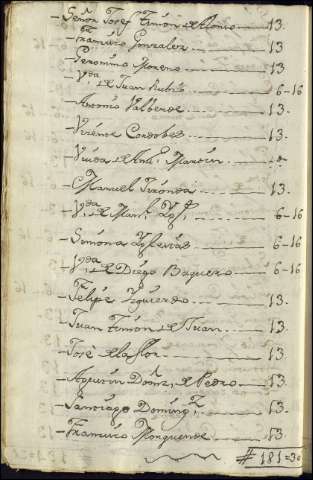 Señor Josef Simón de Alonso 13
Francisco Gonzalez 13
Geronimo Moreno 13
Vda de Juan Rubio 6-16
Antonio Valberde 13
Vizente Cordobes 13
Viuda de Ant.º Martin
Manuel 13
Vda de Man.l 6-16
Simona Yglesias 6-16
Vda de Diego Baquero 6-16
Felipe Yzquierdo 13
Juan Simón de Juan 13
Josè de la flor 13
Agustin Domz. de Pedro 13
Santiago Doming.z 13
Francisco 13
# 181=30